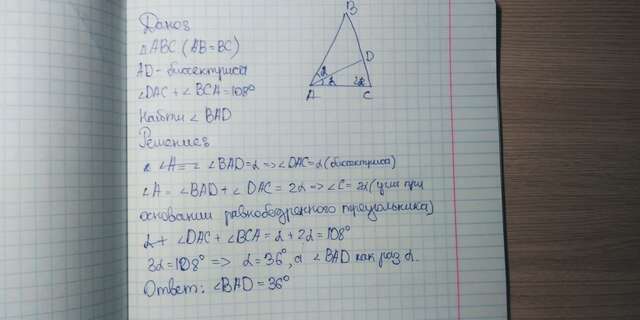 Дано:
△ABC (AB=BC)
AD - биссектриса
∠DAC + ∠BCA = 108°
Найти ∠BAD
Решение:
∠BAD = α => ∠DAC = α (биссектриса)
∠A = ∠BAD + ∠DAC = 2α => ∠C = 2α (углы при
основании равнобедренного треугольника)
∠DAC + ∠BCA = α + 2α = 108°
3α = 108° => α = 36°, а ∠BAD как раз α.
Ответ: ∠BAD = 36°
B
D
α
α
2α
A
C